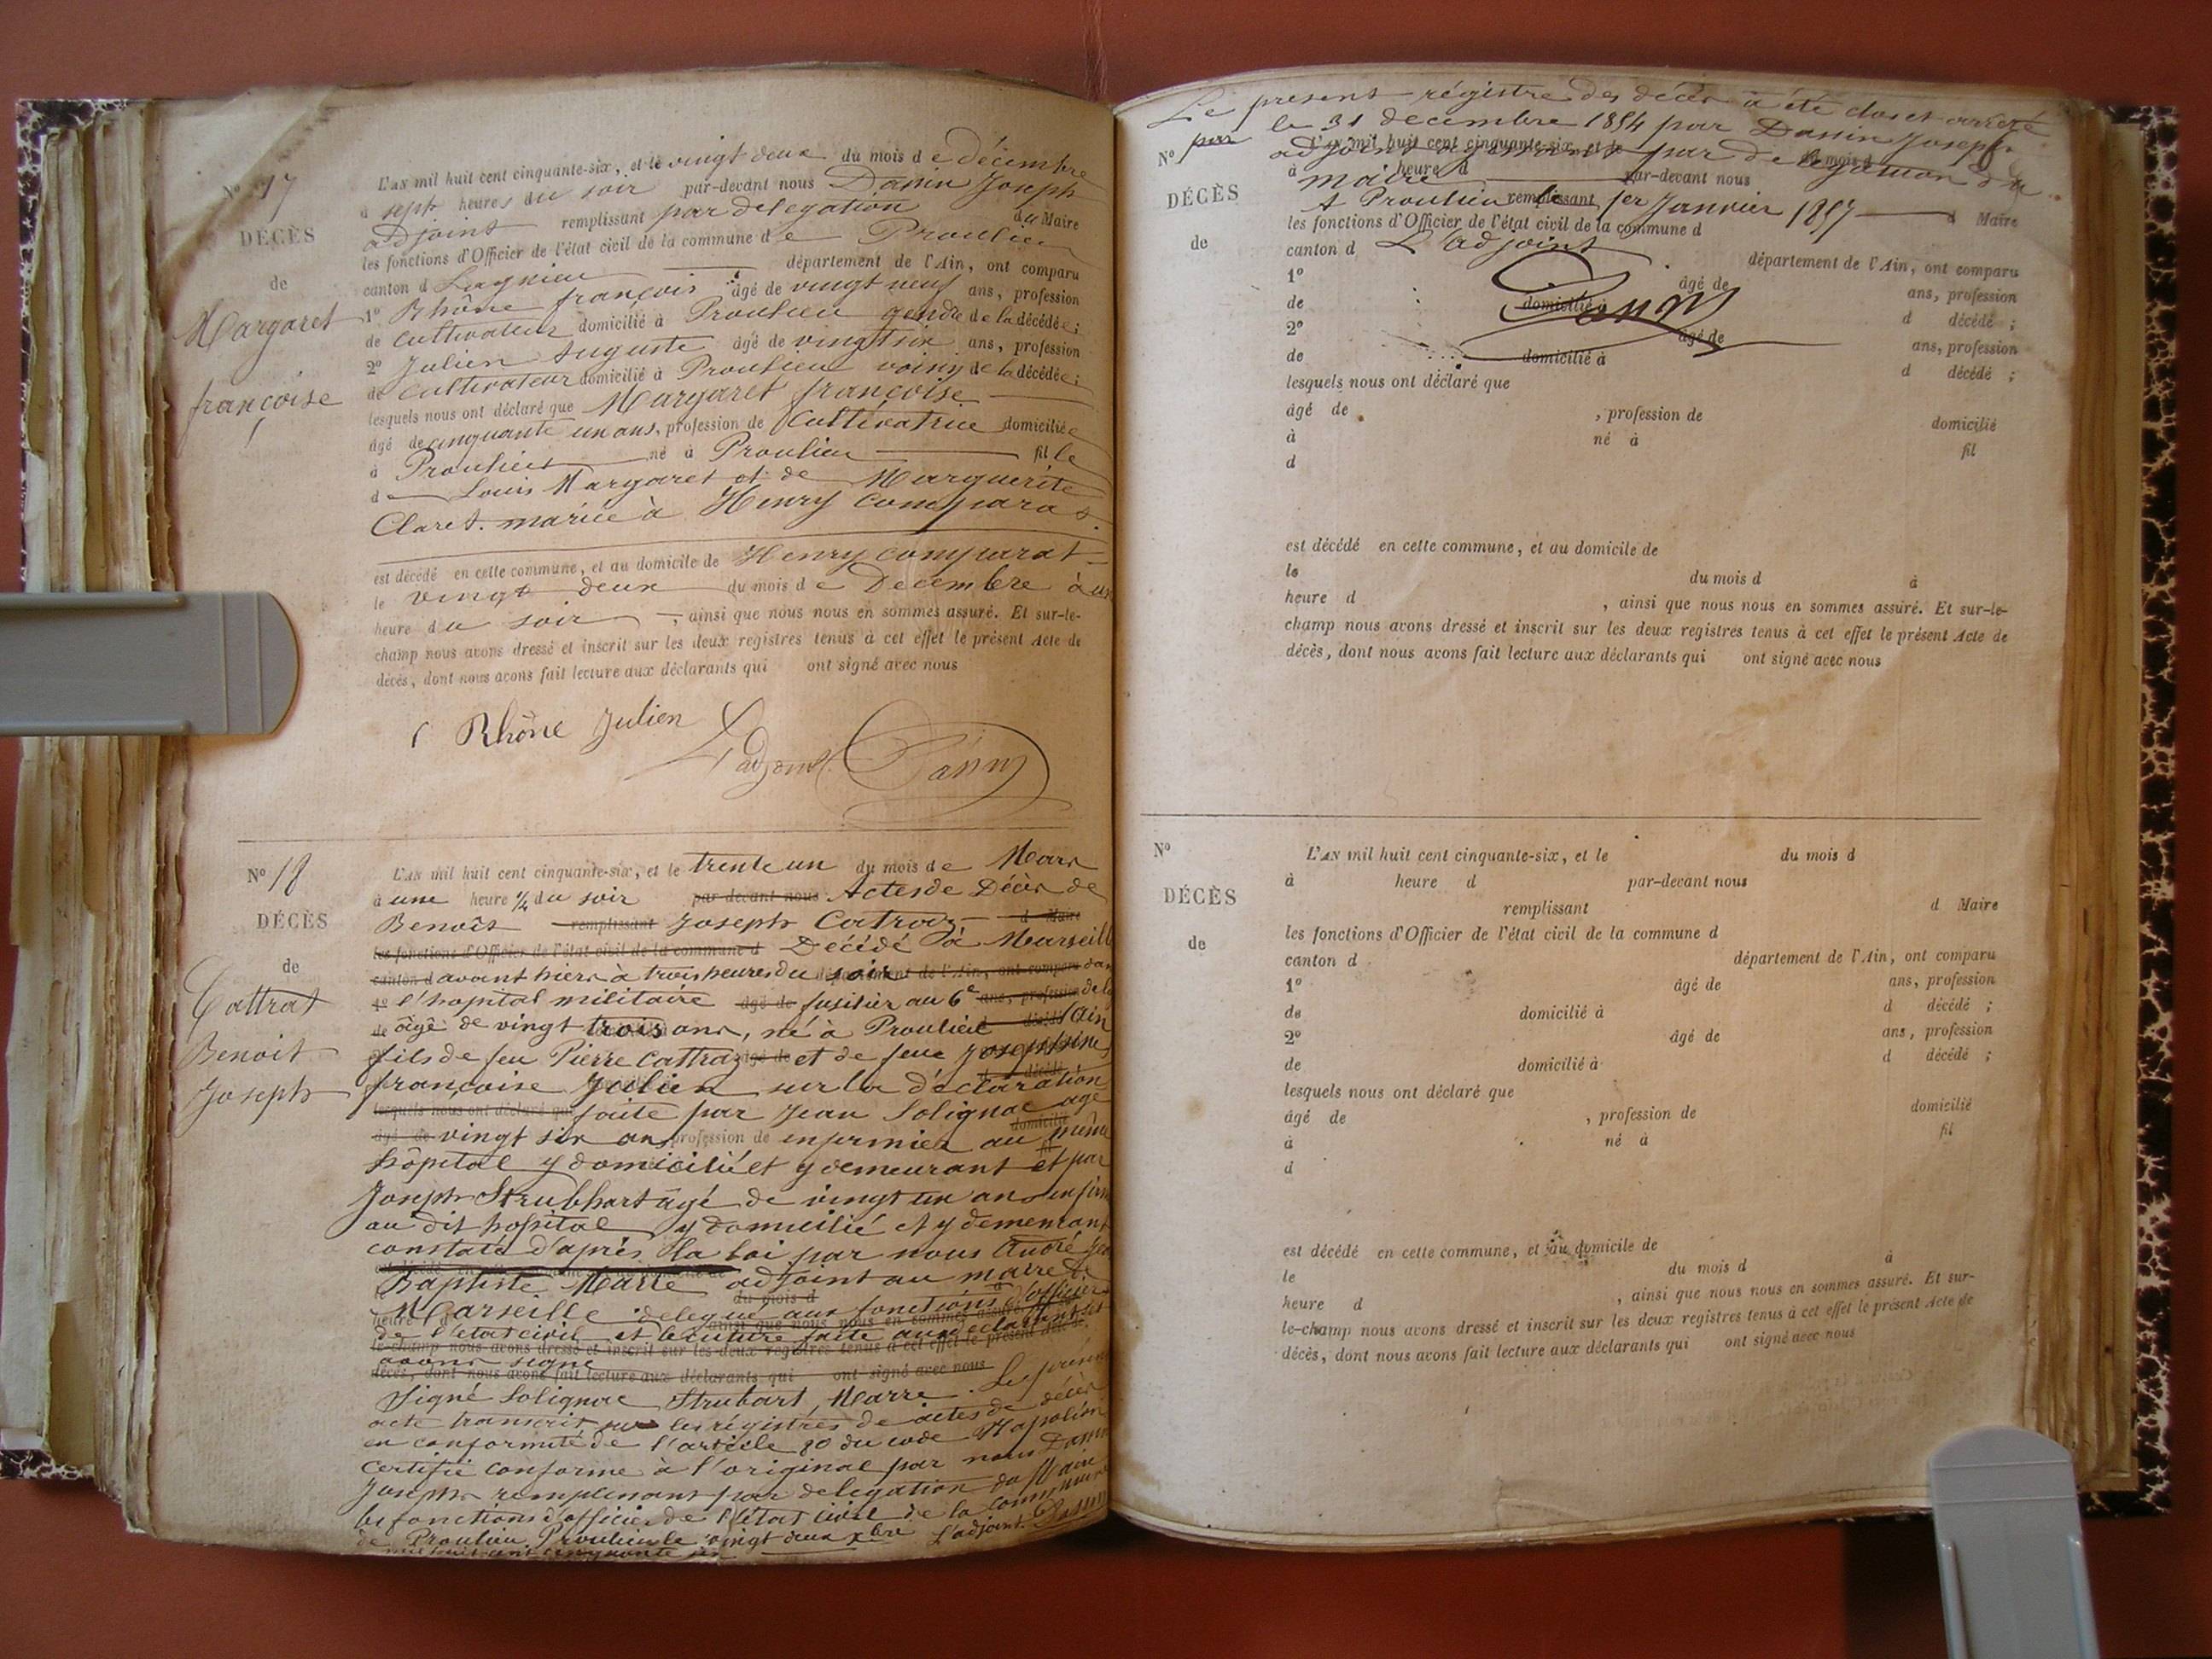 N° 17
DÉCÈS
de
Margaret
françoise
L'AN mil huit cent cinquante-six, et le vingt deux du mois de décembre
à sept heures du soir par-devant nous Danin Joseph
adjoint remplissant par delegation du Maire
les fonctions d'Officier de l'état civil de la commune de Proulieu
canton d Lagnieu département de l'Ain, ont comparu
1° Rhône françois âgé de vingt neuf ans, profession
de cultivateur domicilié à Proulieu gendre de la décédée;
2° Julien Auguste âgé de vingt six ans, profession
de cultivateur domicilié à Proulieu voisin de la décédée;
lesquels nous ont déclaré que Margaret françoise
âgé de cinquante un ans, profession de Cultivatrice domiciliée
à Proulieu né à Proulieu fille
de Louis Margaret et de Marguerite
Claret. mariée à Henry Comparat.
est décédé en cette commune, et au domicile de Henry comparat
le vingt deux du mois de Decembre à une
heure du soir, ainsi que nous nous en sommes assuré. Et sur-le-
champ nous avons dressé et inscrit sur les deux registres tenus à cet effet le présent Acte de
décès, dont nous avons fait lecture aux déclarants qui ont signé avec nous
Rhône Julien
L'adjoint Danin
N° 18
DÉCÈS
de
Cattrat
Benoit
Joseph
L'AN mil huit cent cinquante-six, et le trente un du mois de Mars
à une heure ¼ du soir par-devant nous Acte de Décès de
Benoit remplissant Joseph Catraz d Maire
les fonctions d'Officier de l'état civil de la commune d Décédé à Marseille
canton d avant hier à trois heures du soir département de l'Ain, ont comparu dans
1° l'hopital militaire âgé de fusilier au 6e ans, profession de la
de âgé de vingt trois ans, né à Proulieu décédé (Ain
fils de feu Pierre Cattraz âgé de et de feue Josephine
françoise Julien sur la déclaration
lesquels nous ont déclaré que faite par Jean Solignac agé
âgé de vingt six ans profession de infirmier au domicilié même
hôpital y domicilié et y demeurant et par
Joseph Strubhart âgé de vingt un ans infirm
au dit hopital y domicilié et y demeurant
constaté d'après la loi par nous André Jean
Baptiste Marre adjoint au maire de
du mois d
Marseille delegué aux fonctions d'officier
heure d ainsi que nous nous en sommes assuré
de l'état civil et lecture faite aux declarants
le-champ nous avons dressé et inscrit sur les deux registres tenus à cet effet le présent Acte de
avons signé
décès, dont nous avons fait lecture aux déclarants qui ont signé avec nous
Signé Solignac Strubart, Marre. Le présent
acte transcrit sur les régistres de actes de décès
en conformité de l'article 80 du code Napoléon
Certifié conforme à l'original par nous Danin
Joseph remplissant par delegation du Maire
les fonctions d'officier de l'état civil de la commune
de Proulieu. Proulieu le vingt deux xbre L'adjoint Danin
mil huit cent cinquante six
Le present régistre des décès à été clos et arrêté
par le 31 decembre 1854 par Danin Joseph
N° L'AN mil huit cent cinquante-six, et le du mois d
adjoint par delegation du
à heure d par-devant nous
maire
DÉCÈS
remplissant d Maire
A Proulieu 1er Janvier 1857
les fonctions d'Officier de l'état civil de la commune d
de
canton d département de l'Ain, ont comparu
L'adjoint
1° âgé de ans, profession
de domicilié à d décédé ;
Danin
2° âgé de ans, profession
de domicilié à d décédé ;
lesquels nous ont déclaré que
âgé de , profession de domicilié
à né à fil
d
est décédé en cette commune, et au domicile de
le du mois d à
heure d , ainsi que nous nous en sommes assuré. Et sur-le-
champ nous avons dressé et inscrit sur les deux registres tenus à cet effet le présent Acte de
décès, dont nous avons fait lecture aux déclarants qui ont signé avec nous
N°
DÉCÈS
de
L'AN mil huit cent cinquante-six, et le du mois d
à heure d par-devant nous
remplissant d Maire
les fonctions d'Officier de l'état civil de la commune d
canton d département de l'Ain, ont comparu
1° âgé de ans, profession
de domicilié à d décédé ;
2° âgé de ans, profession
de domicilié à d décédé ;
lesquels nous ont déclaré que
âgé de , profession de domicilié
à né à fil
d
est décédé en cette commune, et au domicile de
le du mois d à
heure d , ainsi que nous nous en sommes assuré. Et sur-
le-champ nous avons dressé et inscrit sur les deux registres tenus à cet effet le présent Acte de
décès, dont nous avons fait lecture aux déclarants qui ont signé avec nous